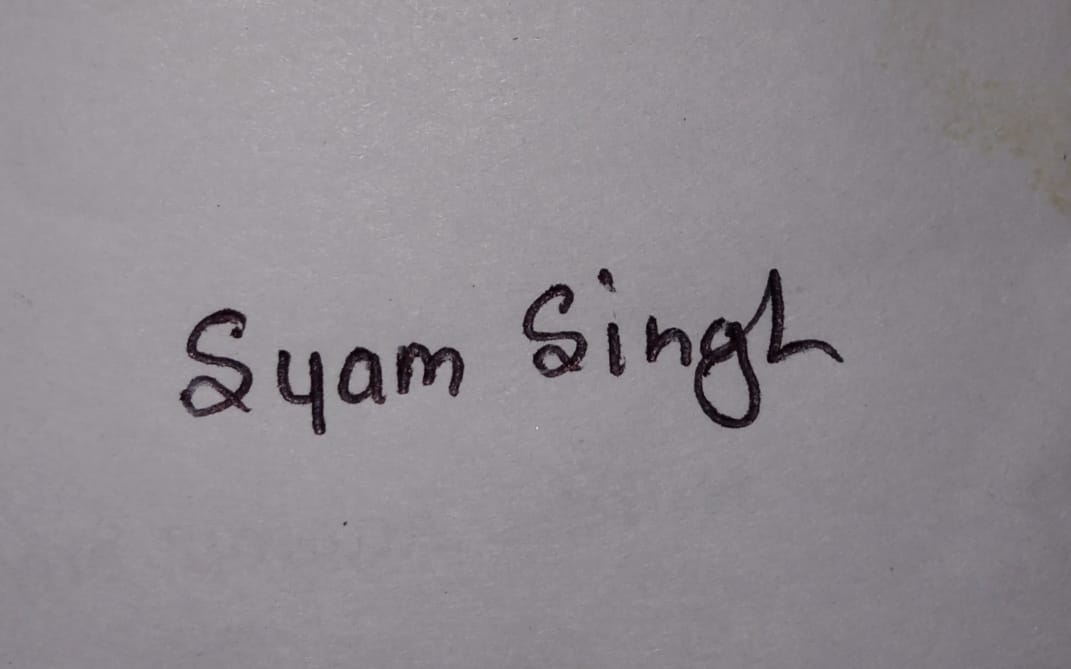 Syam Singh